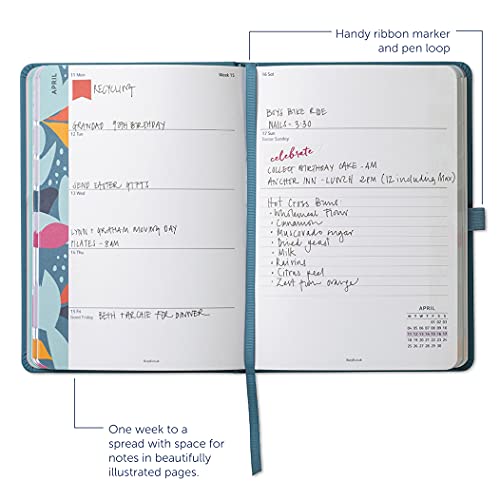 Handy ribbon marker
and pen loop
APRIL
11 Mon
Week 15
RECYCLING
GRANDAD 90TH BIRTHDAY
12 Tue
SEND EASTER GIFTS
13 Wed
LYNN + GRAHAM MOVING DAY
PILATES - 8AM
14 Thu
15 Fri
Good Friday
BETH + ARCHIE FOR DINNER
16 Sat
BOYS BIKE RIDE
NAILS - 3:30
17 Sun
Easter Sunday
celebrate
COLLECT BIRTHDAY CAKE - AM
ANCHOR INN - LUNCH 2PM (12 including Max)
Hot Cross Buns
• Wholemeal Flour
• Cinnamon
• Muscovado sugar
• Dried yeast
• Milk
• Raisins
• Citrus peel
• Zest from orange
APRIL
M T W T F S S
01 02 03
04 05 06 07 08 09 10
11 12 13 14 15 16 17
18 19 20 21 22 23 24
25 26 27 28 29 30
One week to a
spread with space for
notes in beautifully
illustrated pages.